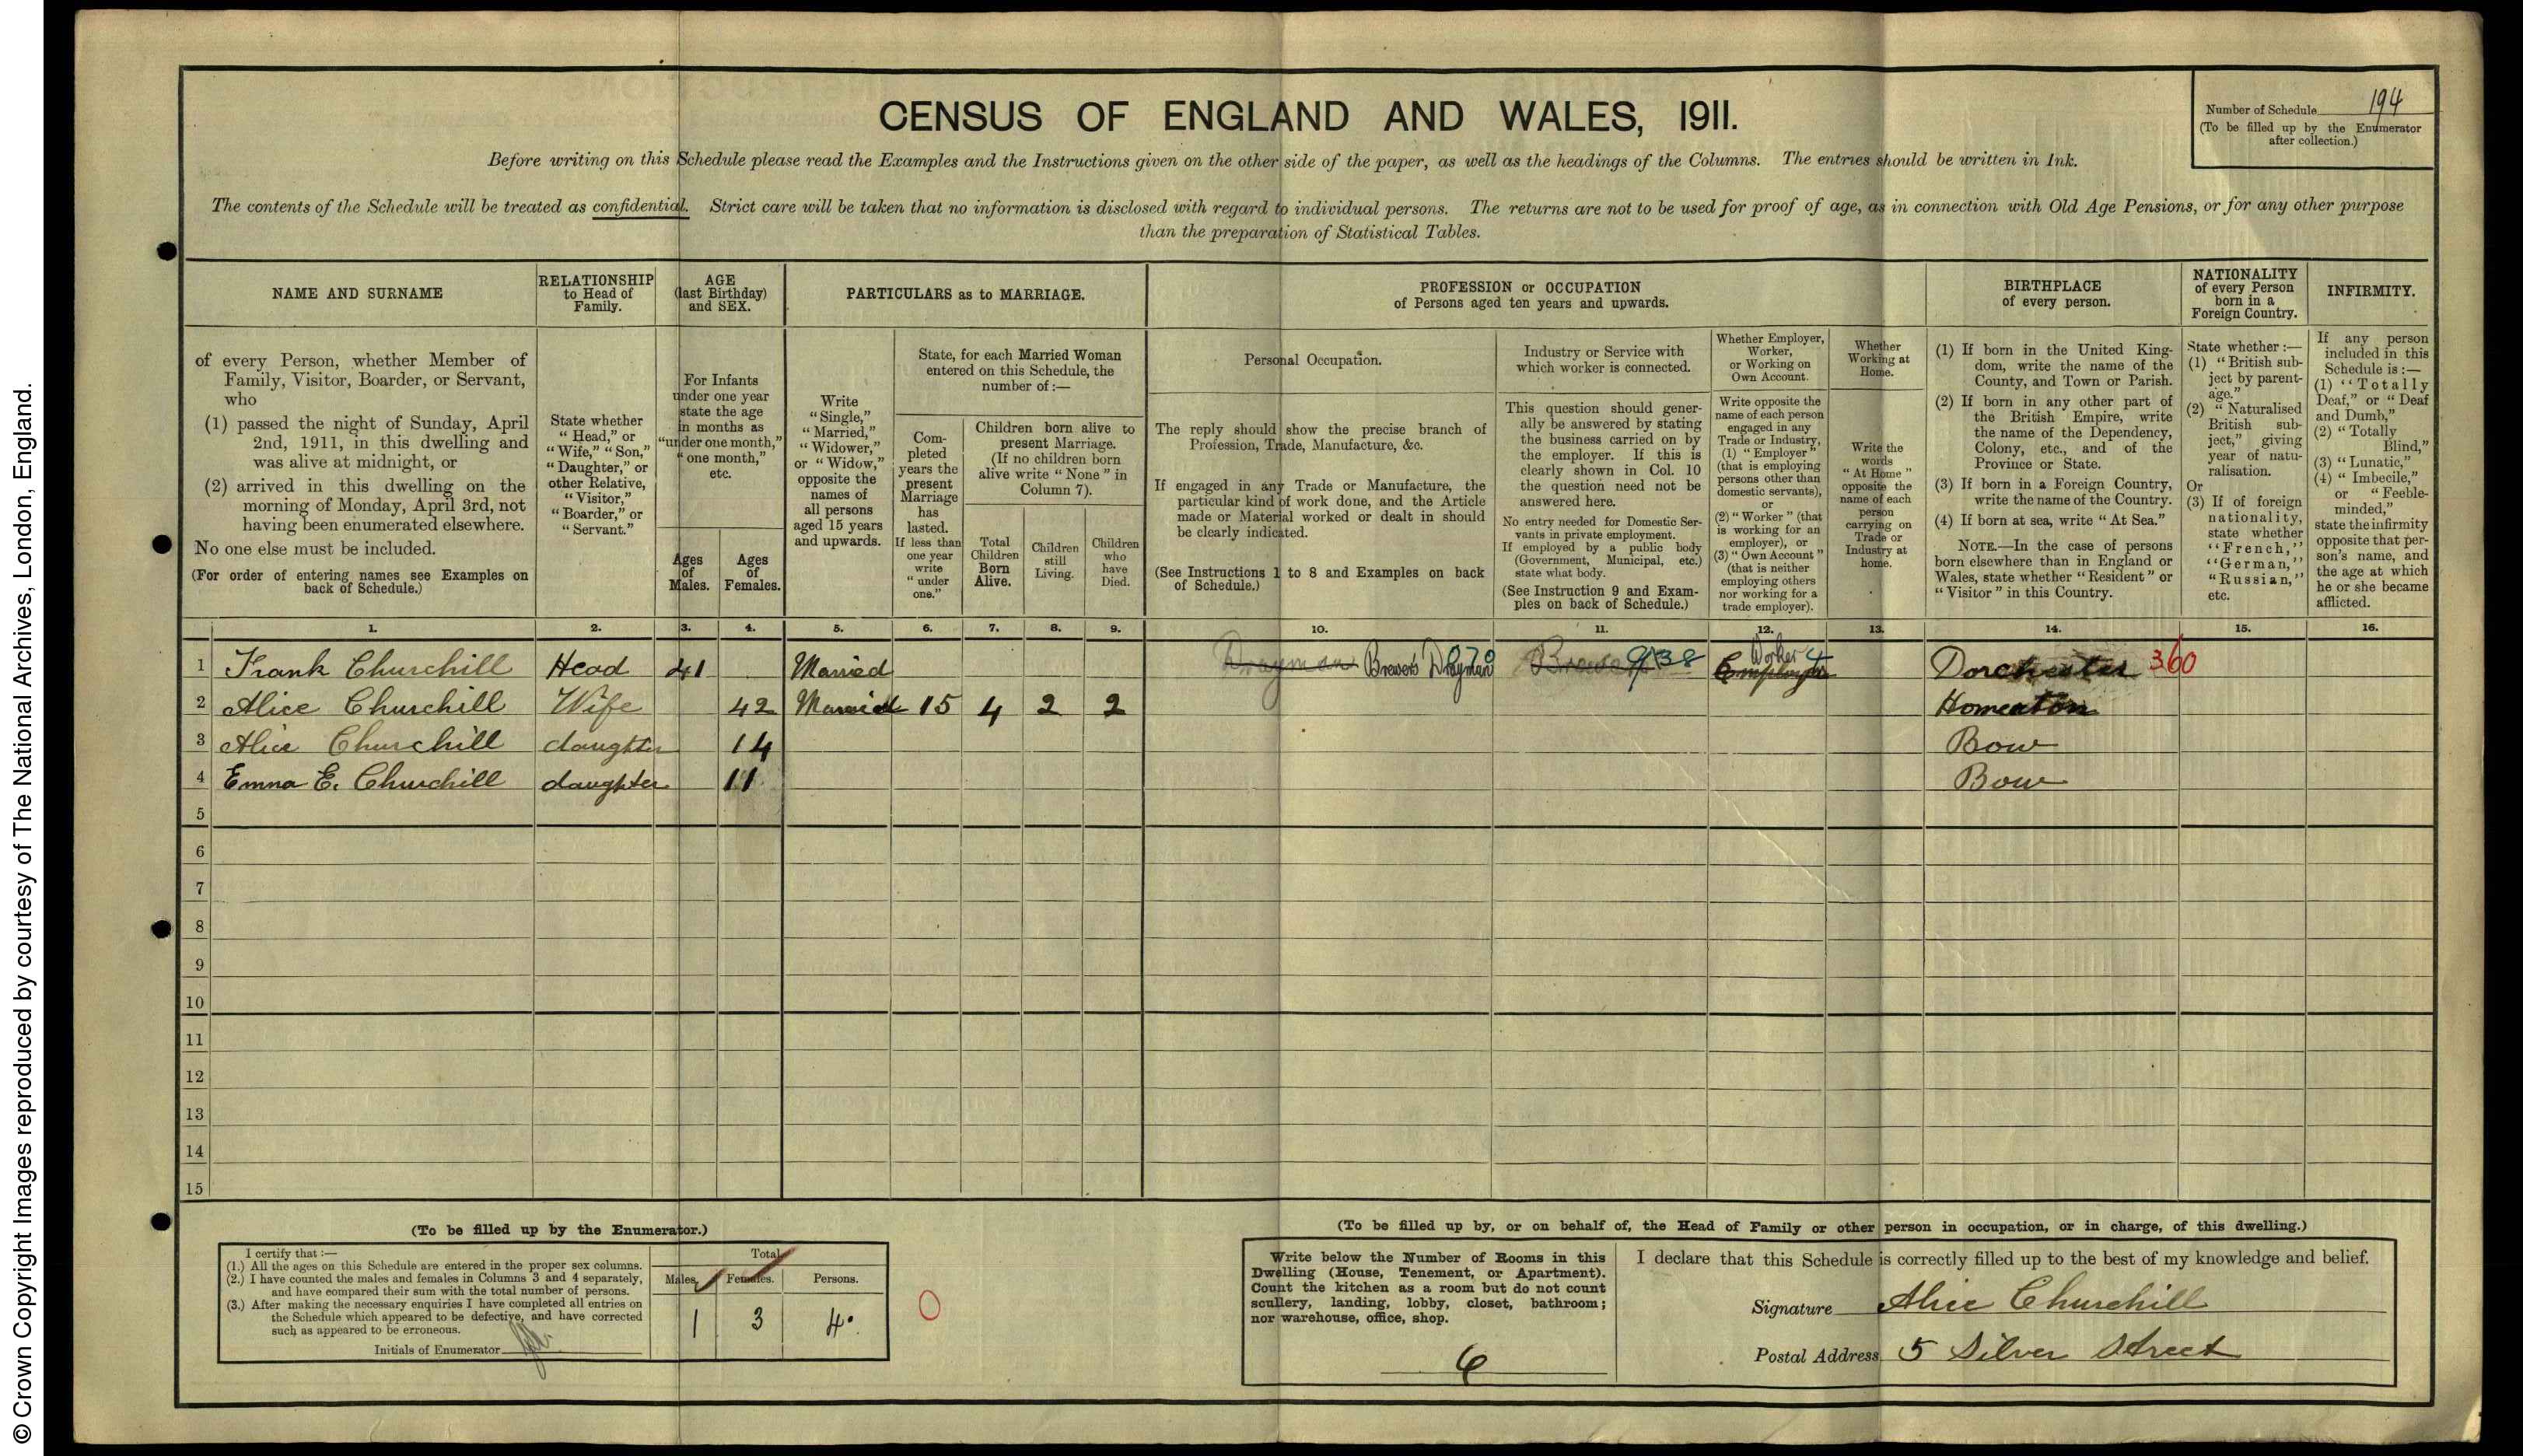 © Crown Copyright Images reproduced by courtesy of The National Archives, London, England.
CENSUS OF ENGLAND AND WALES, 1911.
Number of Schedule 194
(To be filled up by the Enumerator
after collection.)
Before writing on this Schedule please read the Examples and the Instructions given on the other side of the paper, as well as the headings of the Columns. The entries should be written in Ink.
The contents of the Schedule will be treated as confidential. Strict care will be taken that no information is disclosed with regard to individual persons. The returns are not to be used for proof of age, as in connection with Old Age Pensions, or for any other purpose
than the preparation of Statistical Tables.
NAME AND SURNAME
of every Person, whether Member of
Family, Visitor, Boarder, or Servant,
who
(1) passed the night of Sunday, April
2nd, 1911, in this dwelling and
was alive at midnight, or
(2) arrived in this dwelling on the
morning of Monday, April 3rd, not
having been enumerated elsewhere.
No one else must be included.
(For order of entering names see Examples on
back of Schedule.)
RELATIONSHIP
to Head of
Family.
State whether
"Head," or
"Wife," "Son,"
"Daughter," or
other Relative,
"Visitor,"
"Boarder," or
"Servant."
AGE
(last Birthday)
and SEX.
For Infants
under one year
state the age
in months as
"under one month,"
"one month,"
etc.
Ages
of
Males.
Ages
of
Females.
PARTICULARS as to MARRIAGE.
Write
"Single,"
"Married,"
"Widower,"
or "Widow,"
opposite the
names of
all persons
aged 15 years
and upwards.
State, for each Married Woman
entered on this Schedule, the
number of :—
Com-
pleted
years the
present
Marriage
has
lasted.
If less than
one year
write
"under
one."
Children born alive to
present Marriage.
(If no children born
alive write "None" in
Column 7).
Total
Children
Born
Alive.
Children
still
Living.
Children
who
have
Died.
PROFESSION or OCCUPATION
of Persons aged ten years and upwards.
Personal Occupation.
The reply should show the precise branch of
Profession, Trade, Manufacture, &c.
If engaged in any Trade or Manufacture, the
particular kind of work done, and the Article
made or Material worked or dealt in should
be clearly indicated.
(See Instructions 1 to 8 and Examples on back
of Schedule.)
Industry or Service with
which worker is connected.
This question should gener-
ally be answered by stating
the business carried on by
the employer. If this is
clearly shown in Col. 10
the question need not be
answered here.
No entry needed for Domestic Ser-
vants in private employment.
If employed by a public body
(Government, Municipal, etc.)
state what body.
(See Instruction 9 and Exam-
ples on back of Schedule.)
Whether Employer,
Worker,
or Working on
Own Account.
Write opposite the
name of each person
engaged in any
Trade or Industry,
(1) "Employer"
(that is employing
persons other than
domestic servants),
or
(2) "Worker" (that
is working for an
employer), or
(3) "Own Account"
(that is neither
employing others
nor working for a
trade employer).
Whether
Working at
Home.
Write the
words
"At Home"
opposite the
name of each
person
carrying on
Trade or
Industry at
home.
BIRTHPLACE
of every person.
(1) If born in the United King-
dom, write the name of the
County, and Town or Parish.
(2) If born in any other part of
the British Empire, write
the name of the Dependency,
Colony, etc., and of the
Province or State.
(3) If born in a Foreign Country,
write the name of the Country.
(4) If born at sea, write "At Sea."
NOTE.—In the case of persons
born elsewhere than in England or
Wales, state whether "Resident" or
"Visitor" in this Country.
NATIONALITY
of every Person
born in a
Foreign Country.
State whether :—
(1) "British sub-
ject by parent-
age."
(2) "Naturalised
British sub-
ject," giving
year of natu-
ralisation.
Or
(3) If of foreign
nationality,
state whether
"French,"
"German,"
"Russian,"
etc.
INFIRMITY.
If any person
included in this
Schedule is :—
(1) "Totally
Deaf," or "Deaf
and Dumb,"
(2) "Totally
Blind,"
(3) "Lunatic,"
(4) "Imbecile,"
or "Feeble-
minded,"
state the infirmity
opposite that per-
son's name, and
the age at which
he or she became
afflicted.
1. 2. 3. 4. 5. 6. 7. 8. 9. 10. 11. 12. 13. 14. 15. 16.
1 Frank Churchill Head 41 Married Drayman Brewers Drayman 070 Brewer 938 Worker Employer Dorchester 360
2 Alice Churchill Wife 42 Married 15 4 2 2
3 Alice Churchill daughter 14 Bow
4 Emma E. Churchill daughter 11 Bow
5
6
7
8
9
10
11
12
13
14
15
(To be filled up by the Enumerator.)
I certify that :—
(1.) All the ages on this Schedule are entered in the proper sex columns.
(2.) I have counted the males and females in Columns 3 and 4 separately,
and have compared their sum with the total number of persons.
(3.) After making the necessary enquiries I have completed all entries on
the Schedule which appeared to be defective, and have corrected
such as appeared to be erroneous.
Initials of Enumerator
Total
Males. Females. Persons.
1 3 4
0
(To be filled up by, or on behalf of, the Head of Family or other person in occupation, or in charge, of this dwelling.)
Write below the Number of Rooms in this
Dwelling (House, Tenement, or Apartment).
Count the kitchen as a room but do not count
scullery, landing, lobby, closet, bathroom;
nor warehouse, office, shop.
6
I declare that this Schedule is correctly filled up to the best of my knowledge and belief.
Signature Alice Churchill
Postal Address 5 Silver Street